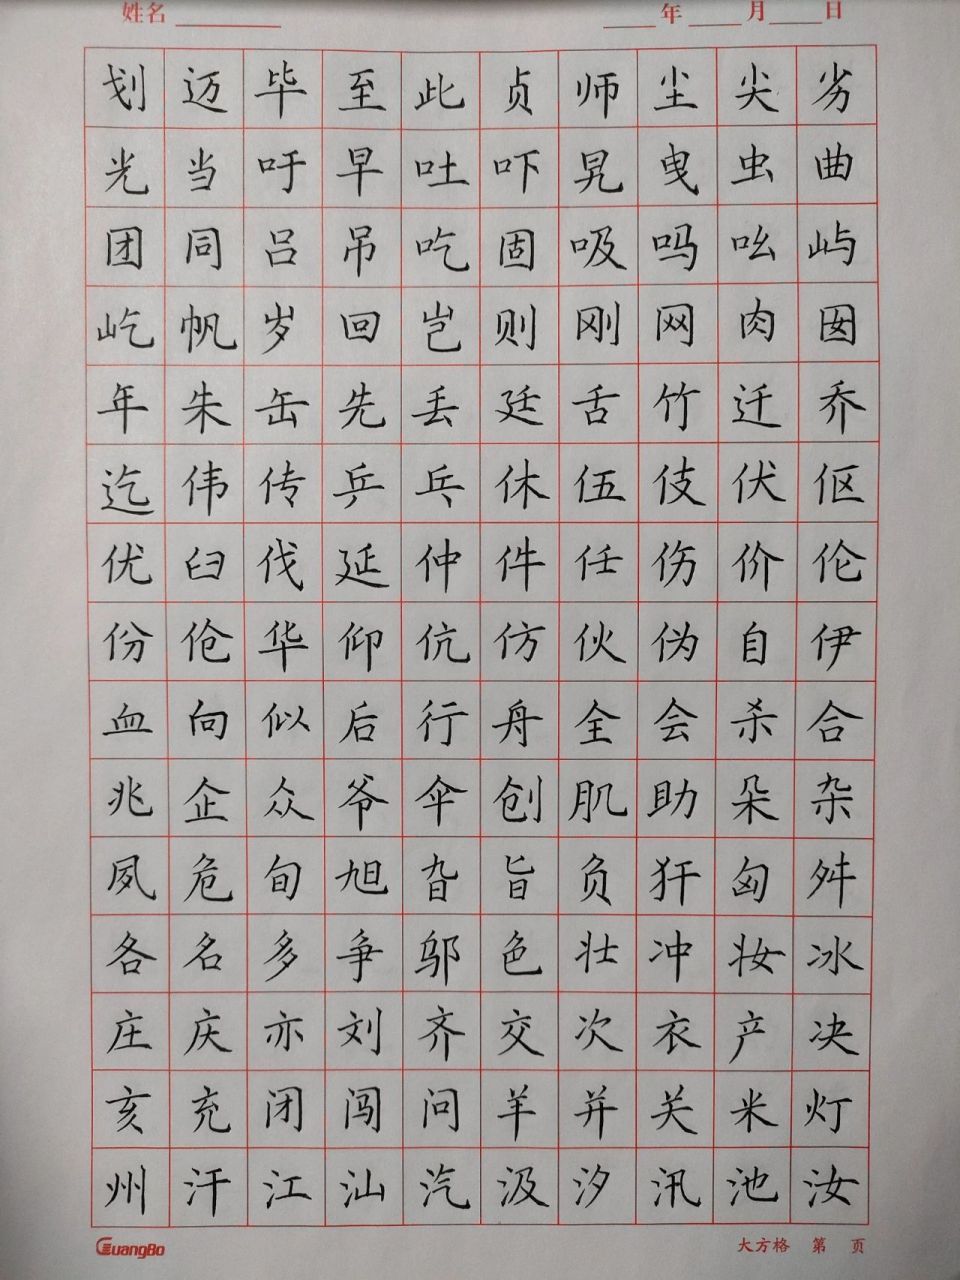 姓名 年 月 日
划迈毕至此贞师尘尖劣
光当吁早吐吓晃曳虫曲
团同吕吊吃固吸吗吆屿
屹帆岁回岂则刚网肉囡
年朱缶先丢廷舌竹迁乔
迄伟传乒乓休伍伎伏伛
优臼伐延仲件任伤价伦
份伧华仰伉仿伙伪自伊
血向似后行舟全会杀合
兆企众爷伞创肌助朵杂
夙危旬旭旮旨负犴匈舛
各名多争邬色壮冲妆冰
庄庆亦刘齐交次衣产决
亥充闭闯问羊并关米灯
州汗江汕汽汲汐汛池汝
GuangBo 大方格 第 页